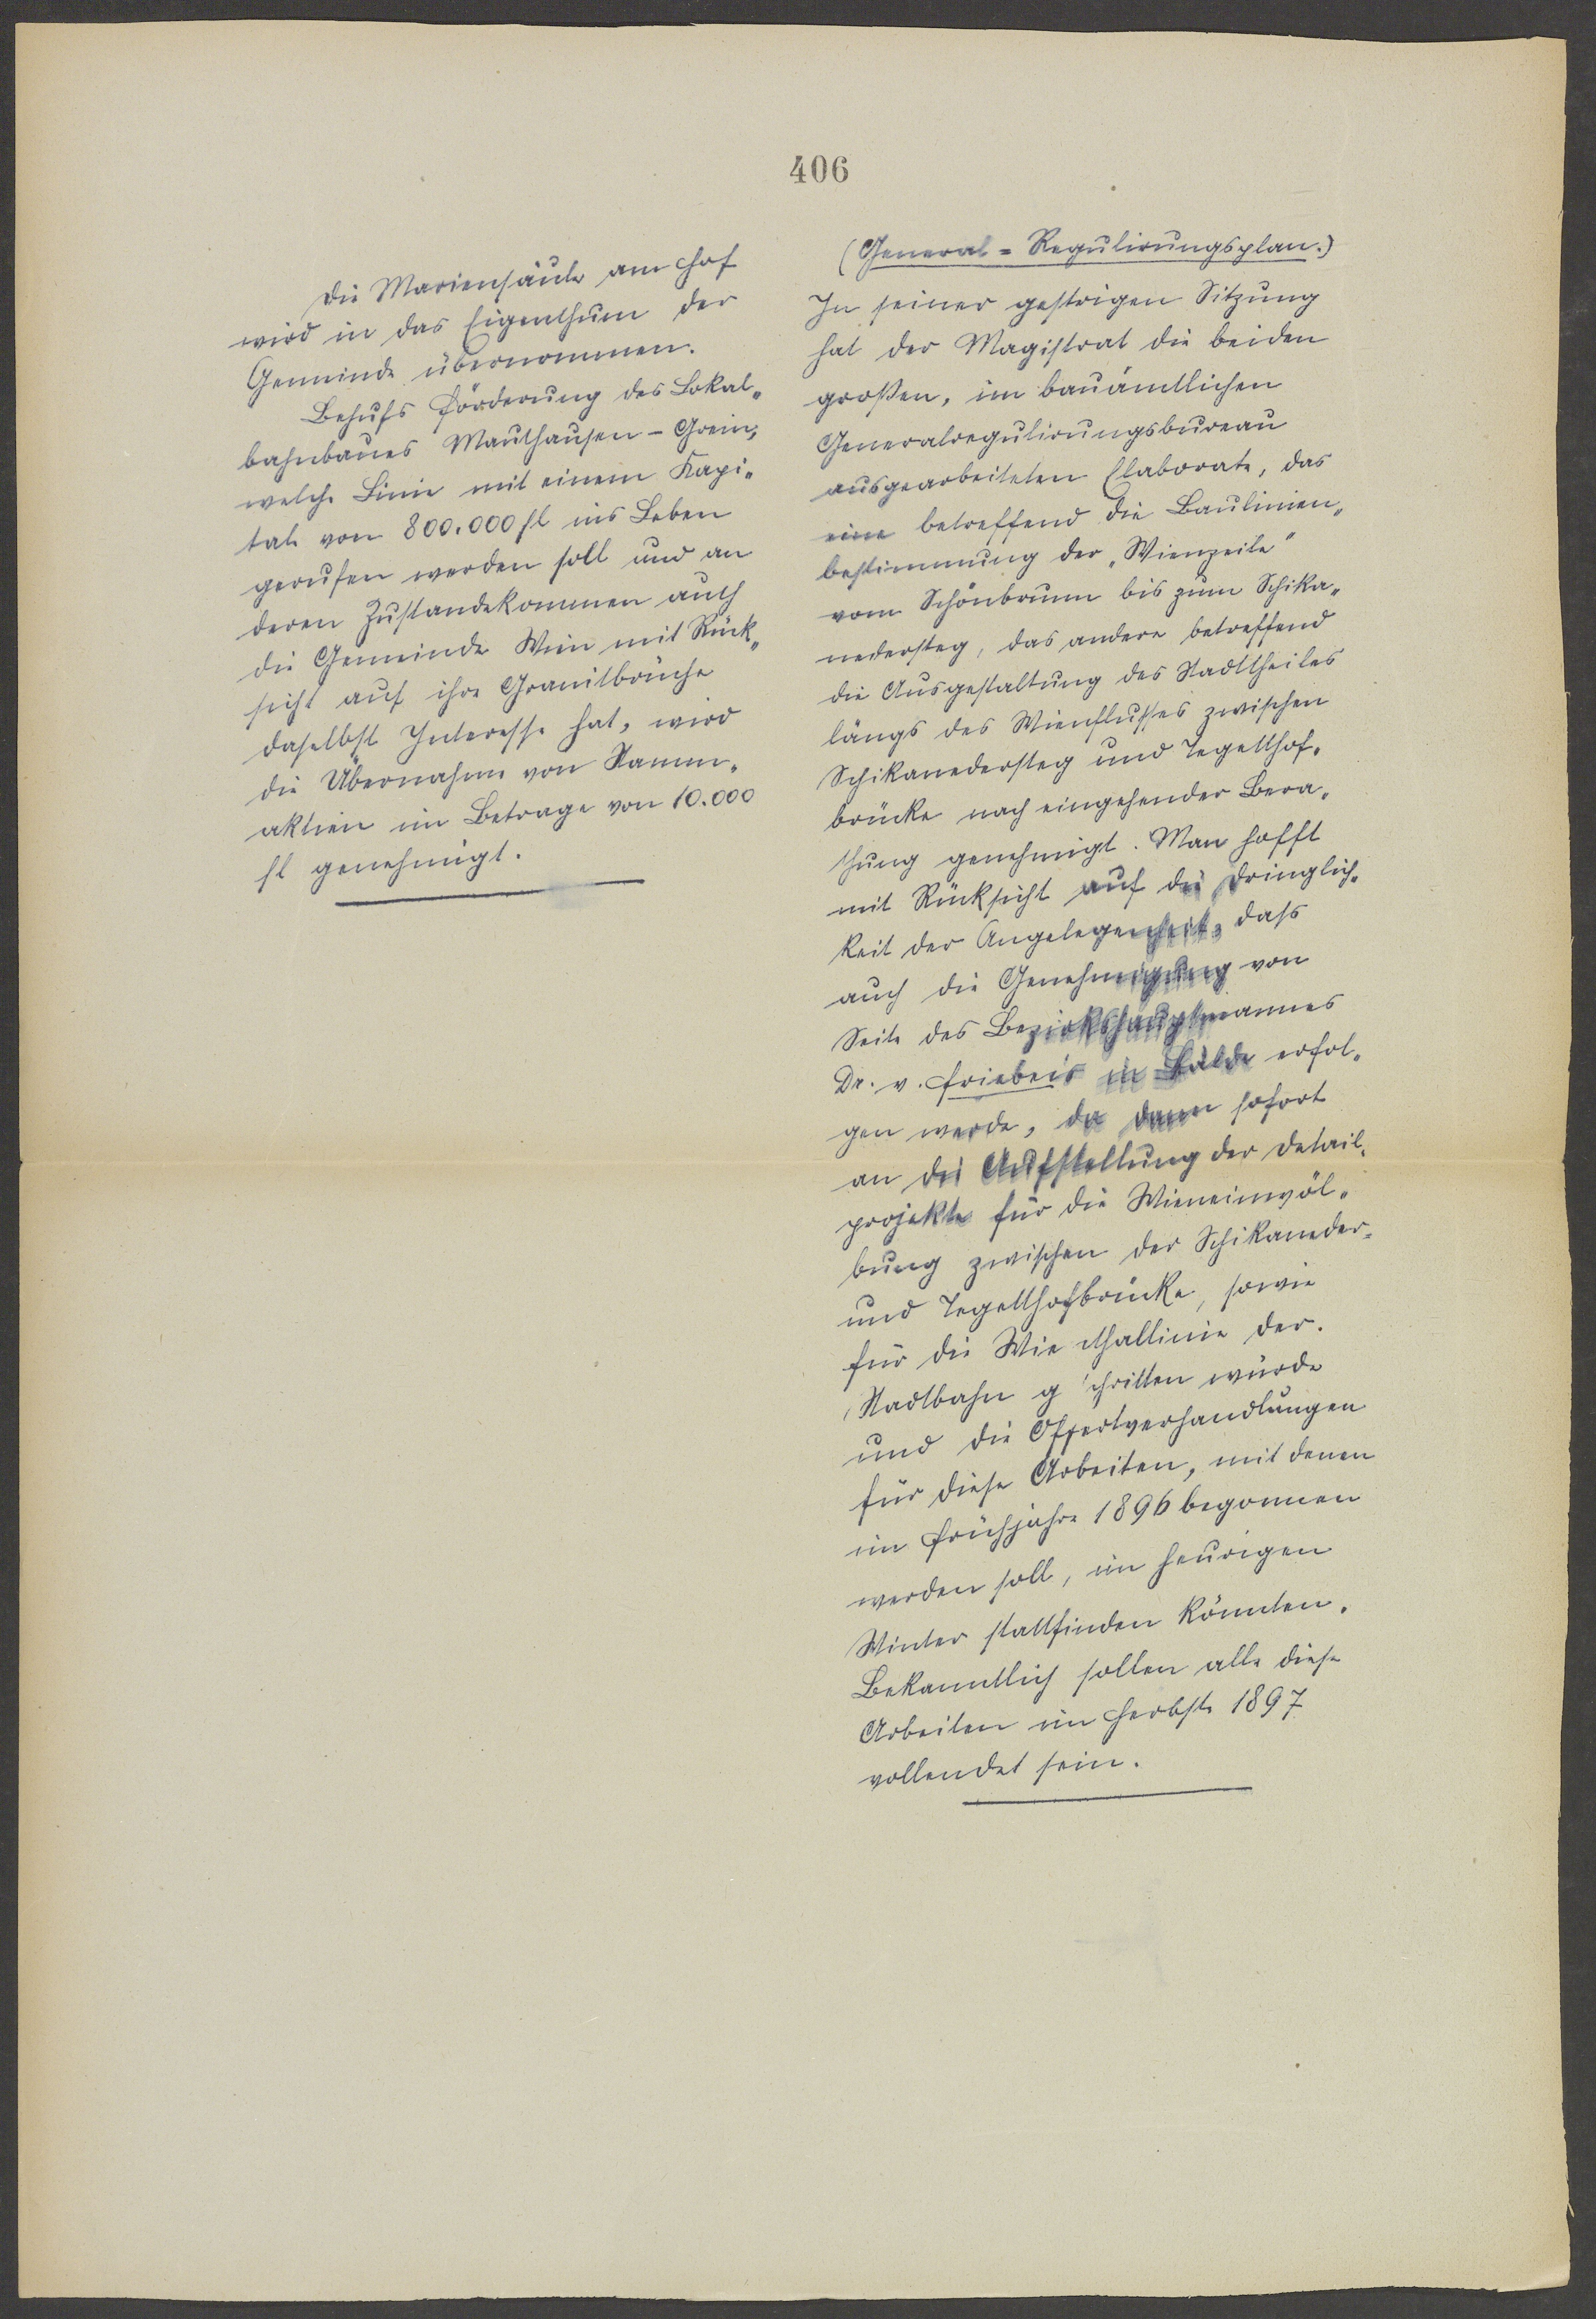 406
Die Mariensäule am Hof
wird in das Eigenthum der
Gemeinde übernommen.
Behufs Förderung des Lokal„
bahnbaues Mauthausen - Grein,
welche Linie mit einem Kapi„
tale von 800.000 fl ins Leben
gerufen werden soll und an
deren Zustandekommen auch
die Gemeinde Wien mit Rück„
sicht auf ihre Granitbrüche
daselbst Interesse hat, wird
die Übernahme von Stamm„
aktien im Betrage von 10.000
fl genehmigt.
(General = Regulirungsplan.)
In seiner gestrigen Sitzung
hat der Magistrat die beiden
großen, im bauämtlichen
Generalregulirungsbureau
ausgearbeiteten Elaborate, das
eine betreffend die Baulinien„
bestimmung der „Wienzeile"
vom Schönbrunn bis zum Schika„
nedersteg, das andere betreffend
die Ausgestaltung des Stadttheiles
längs des Wienflusses zwischen
Schikanedersteg und Tegetthof„
brücke nach eingehender Bera„
thung genehmigt. Man hofft
mit Rücksicht auf die Dringlich„
keit der Angelegenheit, dass
auch die Genehmigung von
Seite des Bezirkshauptmannes
Dr. v. Friebeis in Bälde erfol„
gen werde, da dann sofort
an die Aufstellung der Detail„
projekte für die Wieneinwöl„
bung zwischen der Schikaneder=
und Tegetthofbrücke, sowie
für die Wie thallinie der
Stadtbahn g schritten würde
und die Offertverhandlungen
für diese Arbeiten, mit denen
im Frühjahre 1896 begonnen
werden soll, im heurigen
Winter stattfinden könnten.
Bekanntlich sollen alle diese
Arbeiten im Herbste 1897
vollendet sein.